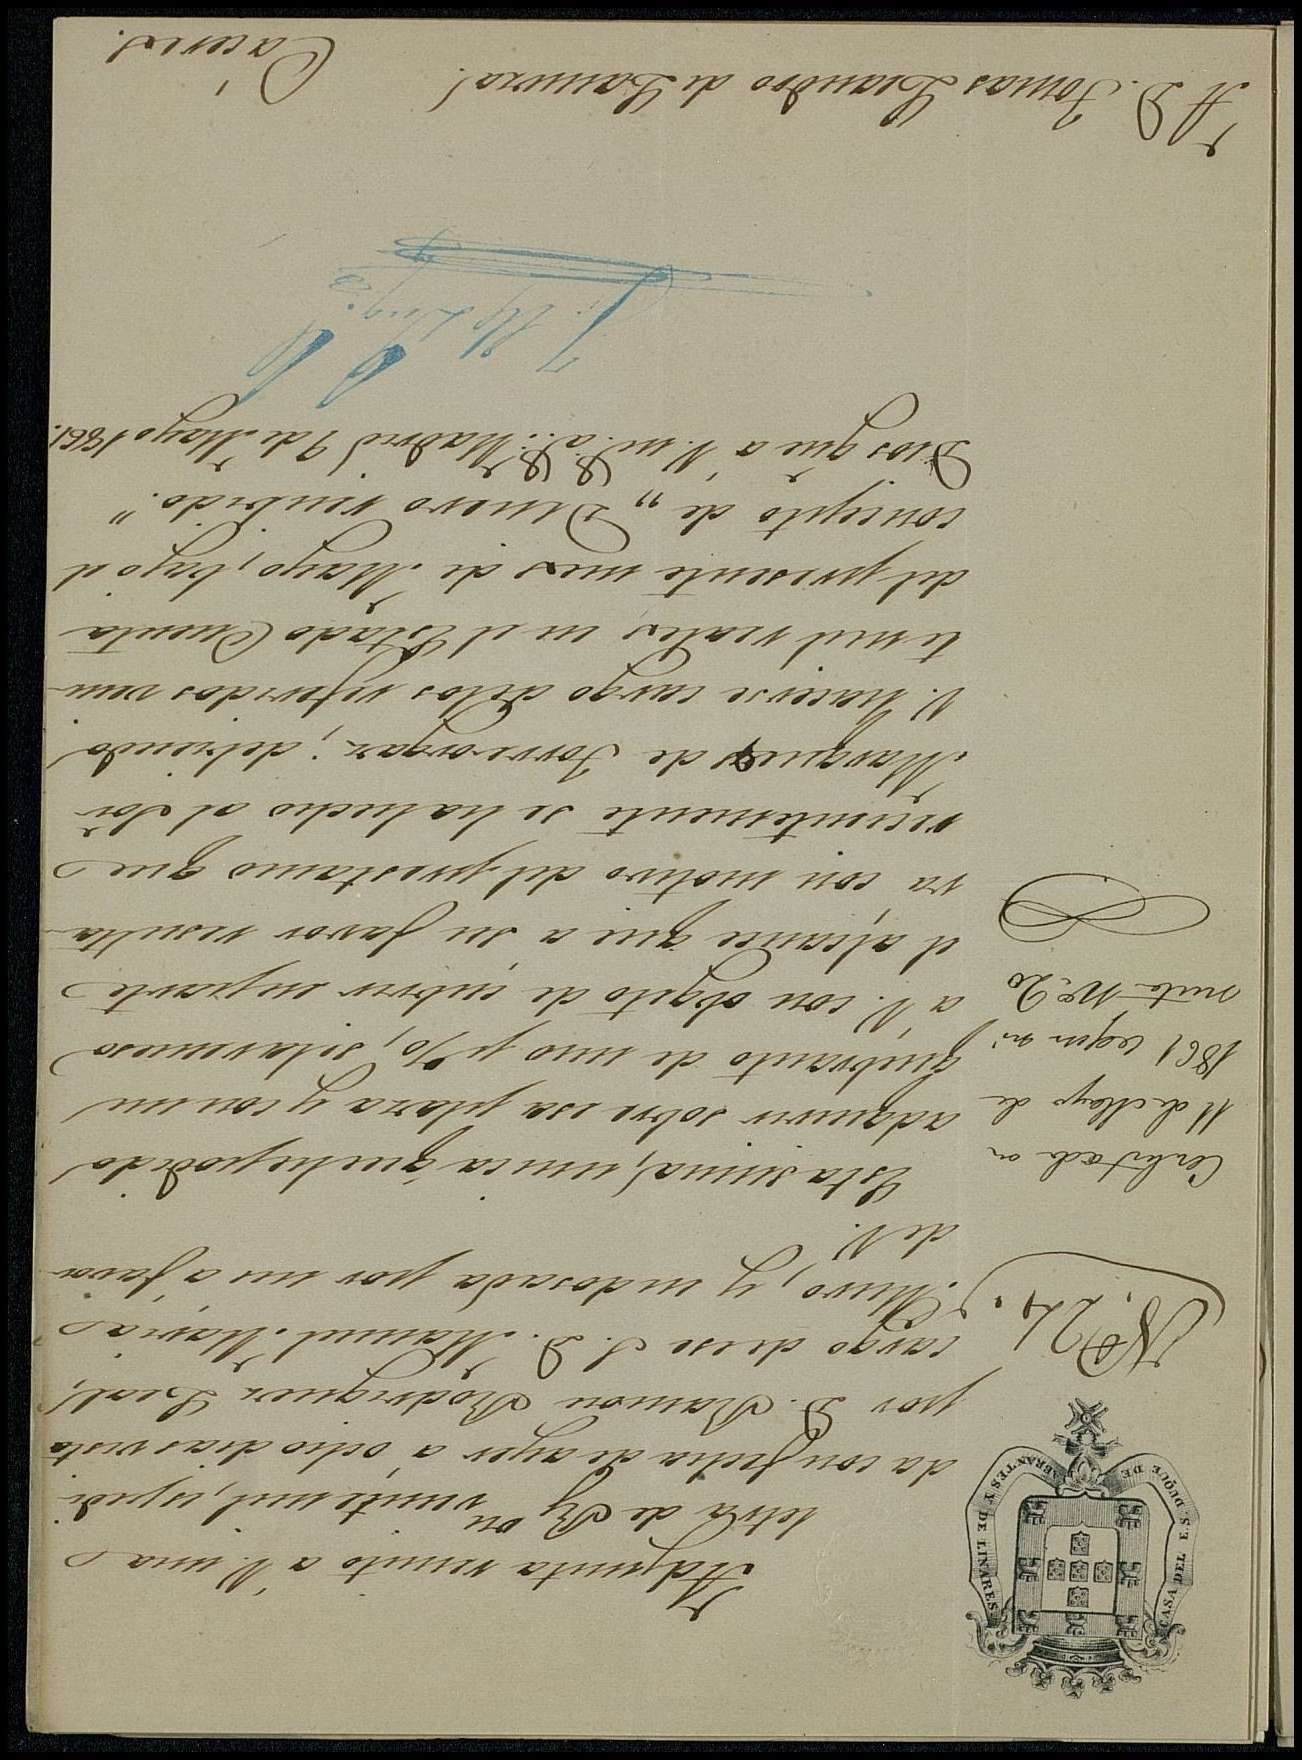 CASA DEL E.S. DUQUE DE ABRANTES Y DE LINARES
Nº. 24.
Contestada en
11 de Mayo de
1861 segun mi
nuta Nº 20
Adjunta remito á V. una
letra de Rv̄on veinte mil, espedi-
da con fecha de ayer á ocho dias vista
por D. Ramon Rodriguez Leal,
cargo de ese S. D. Manuel Maria
Muro, y endosada por mi á favor
de V.
Esta suma, unica que he podido
adquirir sobre esa plaza y con un
quebranto de uno p%, se la remeso
á V. con objeto de cubrir en parte
el alcance que á su favor resulta-
rá con motivo del prestamo que
recientemente se ha hecho al Sor̄
Marques de Torreorgaz; debiendo
V. hacerse cargo de los referidos vein-
te mil reales en el Estado Cuenta
del presente mes de Mayo, bajo el
concepto de „Dinero recibido."
Dios gūe á V. m.s a.s Madrid 9 de Mayo 1861.
A D. Tomas Leandro de Zamora.
Cáceres.